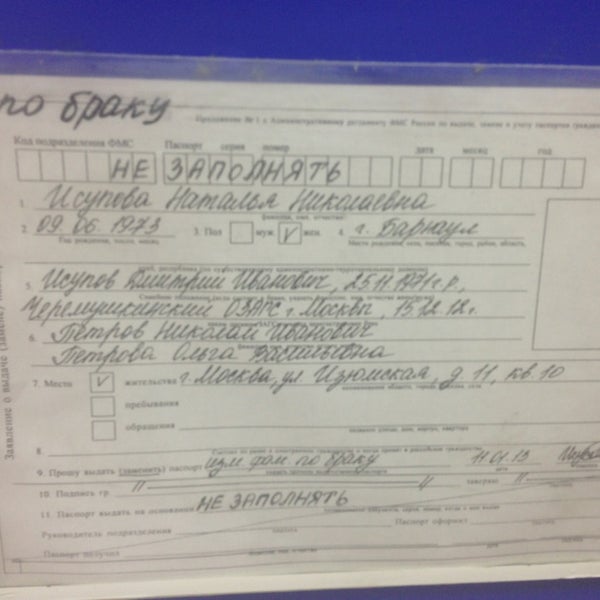 по браку
Приложение № 1 к Административному регламенту ФМС России по выдаче, замене и учету паспортов
Код подразделения ФМС Паспорт серия номер дата месяц год
НЕ ЗАПОЛНЯТЬ
1. Исупова Наталья Николаевна
фамилия, имя, отчество
2. 09.06.1973 3. Пол муж. V жен. 4. г. Барнаул
Год рождения, число, месяц Место рождения, село, город, район, область,
5. Исупов Дмитрий Иванович, 25.11.1971 г.р.,
Черемушкинский ОЗАГС г. Москвы, 15.12.12 г.
6. Петров Николай Иванович
Петрова Ольга Васильевна
7. Место V жительства г. Москва, ул. Изюмская, д. 11, кв. 10
пребывания
обращения
название улицы, дом, корпус, квартира
8.
9. Прошу выдать (заменить) паспорт изм. фам. по браку 11.01.13
дата
10. Подпись гр. " " заверяю "
11. Паспорт выдать на основании НЕ ЗАПОЛНЯТЬ
Руководитель подразделения Паспорт оформил
подпись подпись
Паспорт получил дата подпись
Заявление о выдаче (замене)